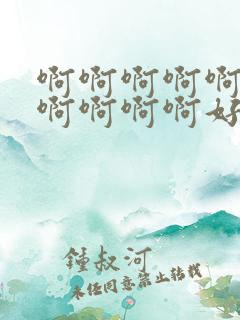 啊啊啊啊啊
啊啊啊啊好
鍾叔河
未经同意禁止转载